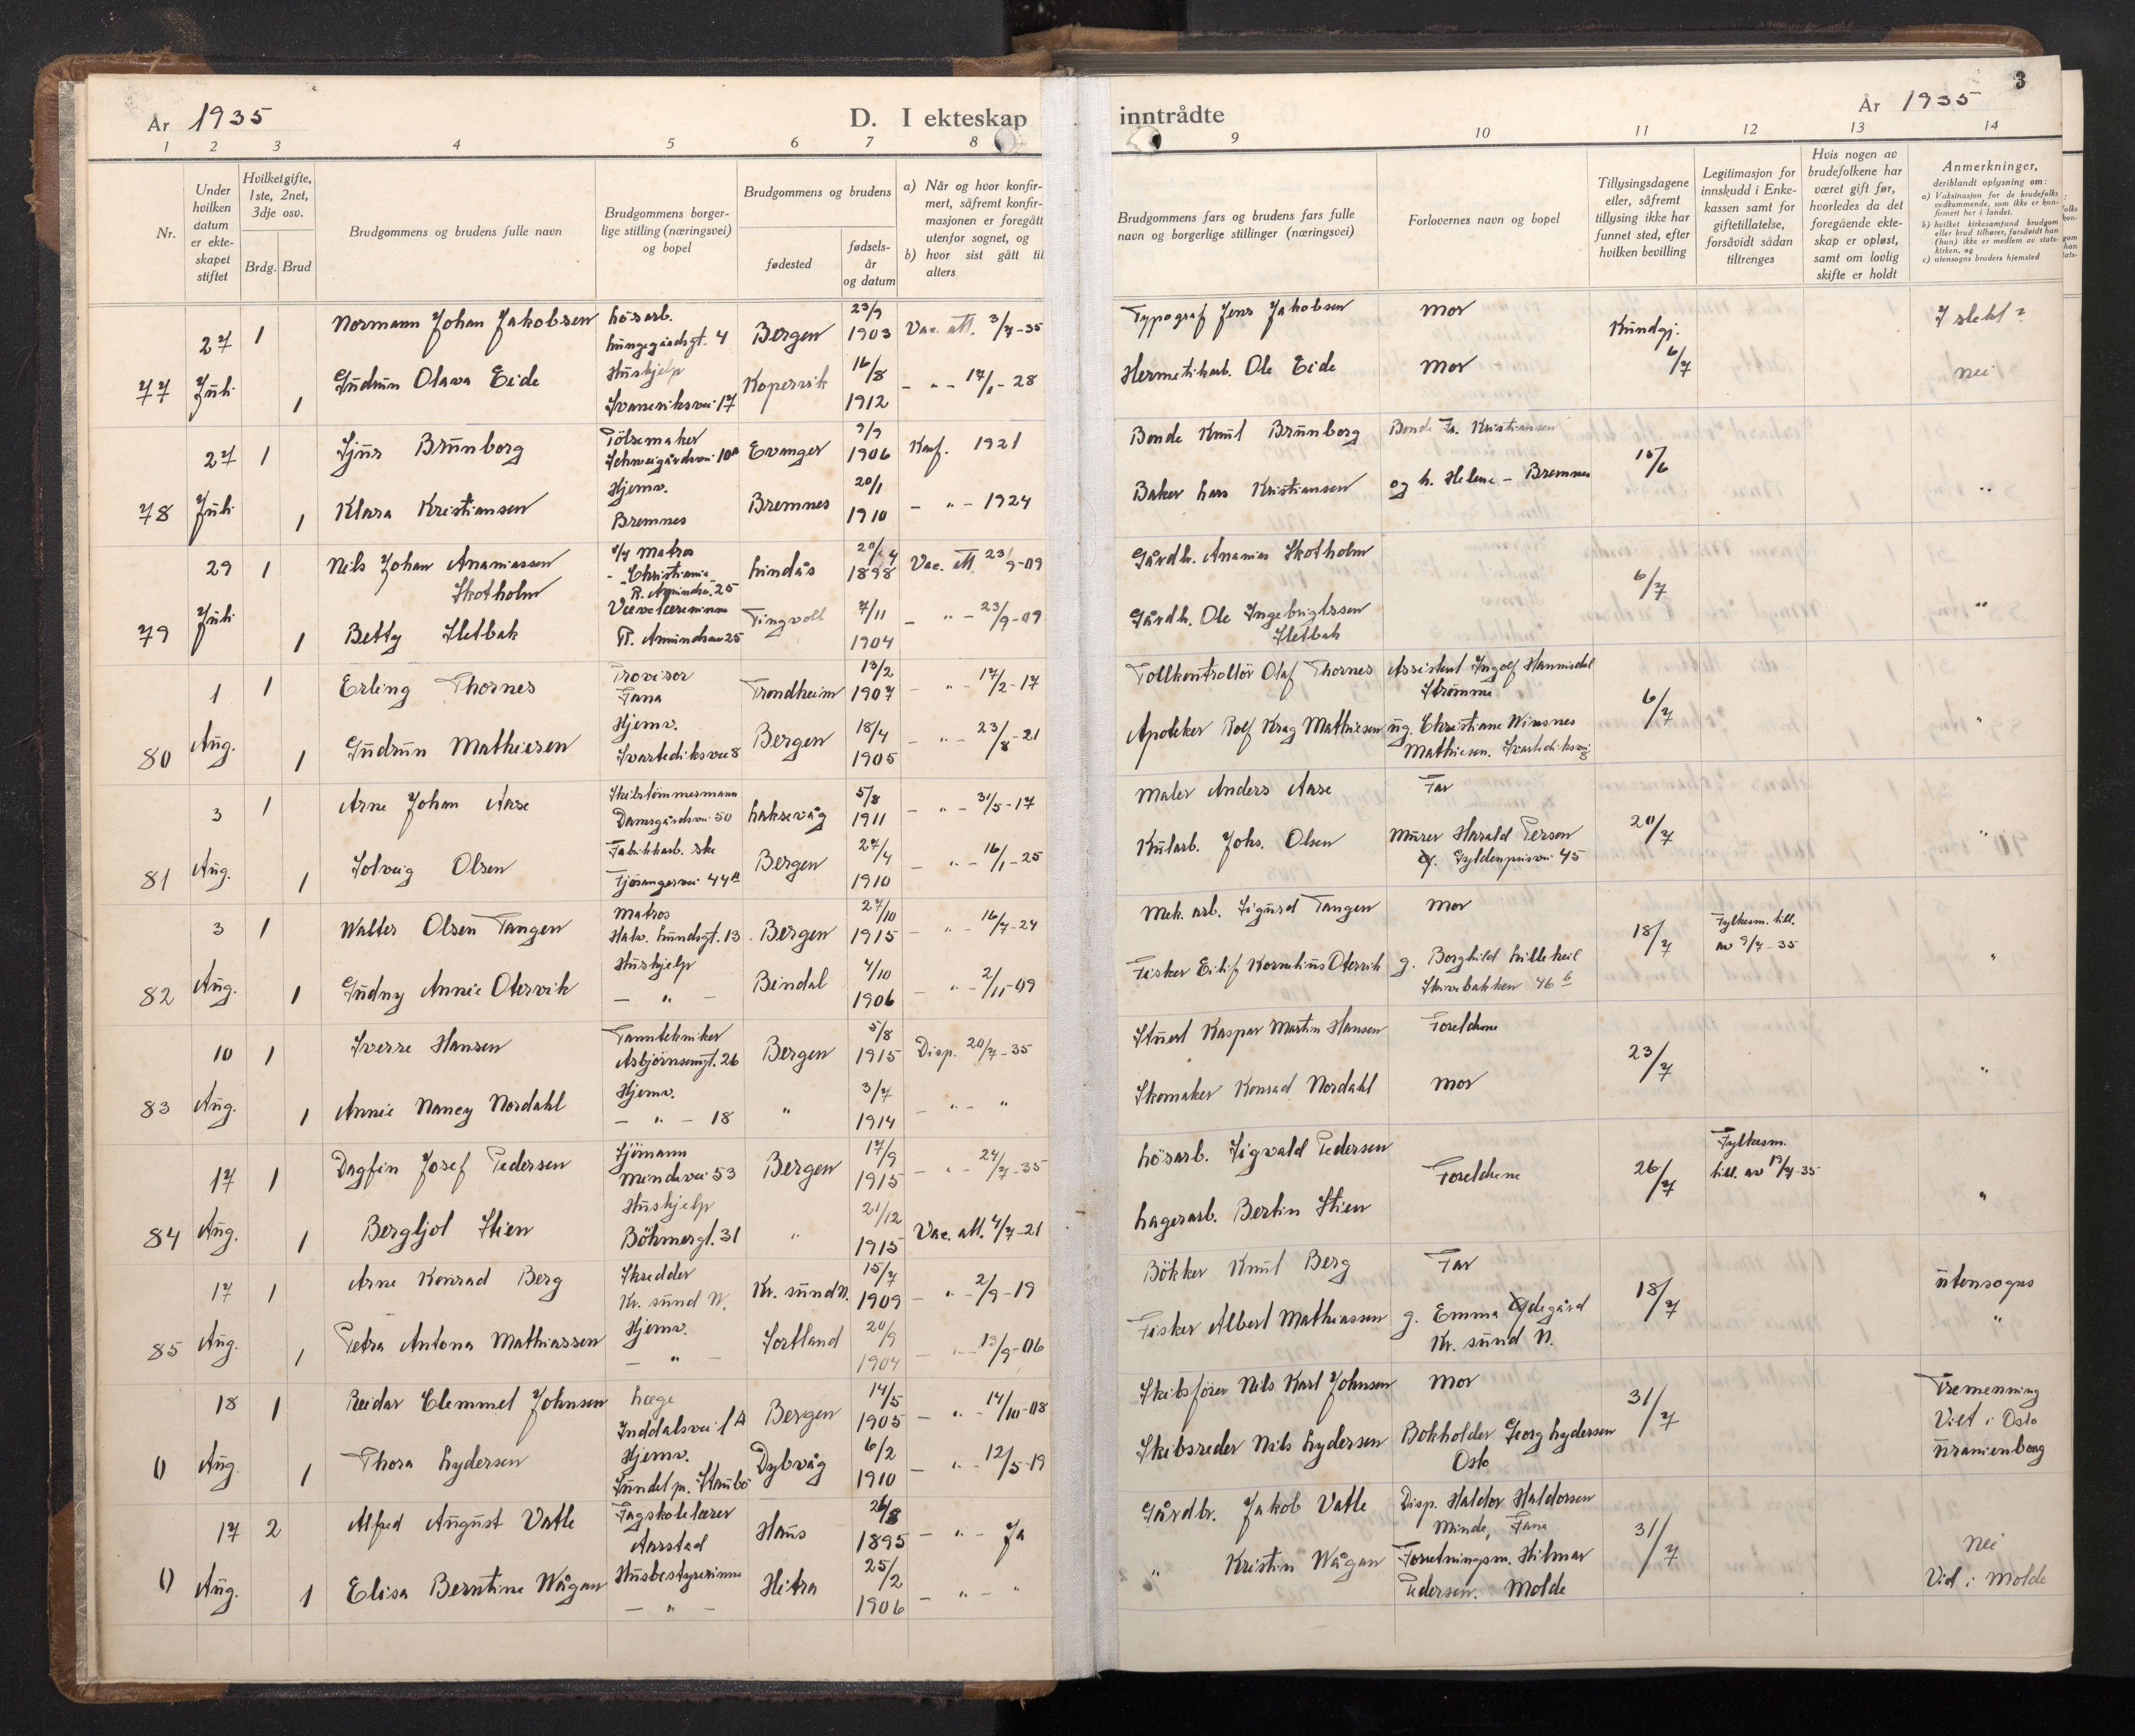 År 1935
D. I ekteskap
1 2 3 4 5 6 7 8
Nr.
Under hvilken datum er ekteskapet stiftet
Hvilket gifte, 1ste, 2net, 3dje osv.
Brdg. Brud
Brudgommens og brudens fulle navn
Brudgommens borgerlige stilling (næringsvei) og bopel
Brudgommens og brudens
fødested
fødselsår og datum
a) Når og hvor konfirmert, såfremt konfirmasjonen er foregått utenfor sognet, og
b) hvor sist gått til alters
27 1 Normann Johan Jakobsen Lösarb. 23/9
Lungegårdsgt. 4 Bergen 1903 Vac. att. 3/7-35
77 Juli 1 Gudrun Olava Eide Hushjelp Kopervik 16/8 - " - 17/1-28
Svaneviksvei 17 1912
27 1 Sjur Brunborg Pölsemaker Evanger 9/9 Konf. 1921
Schweigårdsvei 10a 1906
78 Juli 1 Klara Kristiansen Hjemv. Bremnes 20/1 - " - 1924
Bremnes 1910
29 1 Nils Johan Ananiassen Matros Lindås 1898 Vac. att. 23/9-09
Skotholm - Christiania
79 Juli 1 Betty Sletbak Tingvoll 7/11 - " - 23/9-09
R. Amundsv. 25 1904
1 1 Erling Thornes Provisor Trondheim 13/2 - " - 17/2-17
Fana 1907
80 Aug. 1 Gudrun Mathiesen Hjemv. Bergen 18/4 - " - 23/8-21
Svartediksvei 8 1905
3 1 Arne Johan Aase Skibstömmermann Laksevåg 5/8 - " - 31/5-17
Damsgårdsvei 50 1911
81 Aug. 1 Solveig Olsen Fabrikkarb. ske Bergen 27/4 - " - 16/1-25
Fjösangervei 44a 1910
3 1 Walter Olsen Tangen Matros Bergen 27/10 - " - 16/7-24
Halv. Lundsgt. 13 1915
82 Aug. 1 Gudny Annie Otervik Hushjelp Bindal 4/10 - " - 2/11-09
- " - 1906
10 1 Sverre Hansen Tanntekniker Bergen 5/8 Disp. 20/7-35
Asbjörnsensgt. 26 1915
83 Aug. 1 Annie Nancy Nordahl Hjemv. " 3/7 - " - "
- " - 18 1914
17 1 Dagfin Josef Pedersen Sjömann Bergen 17/9 - " - 24/7-35
Mindevei 53 1915
84 Aug. 1 Bergljot Stien Hushjelp " 21/12 Vac. att. 4/7-21
Böhmergt. 31 1915
17 1 Arne Konrad Berg Skredder Kr. sund N. 15/7 - " - 2/9-19
Kr. sund N. 1909
85 Aug. 1 Petra Antona Mathiassen Hjemv. Sortland 20/9 - " - 13/9-06
- " - 1904
18 1 Reidar Clemmet Johnsen Læge Bergen 14/5 - " - 14/10-08
Inddalsvei 1A 1905
0 Aug. 1 Thora Lydersen Hjemv. Dybvåg 6/2 - " - 12/5-19
Sundet pr. Staubö 1910
17 2 Alfred August Vatle Fagskolelærer Haus 26/8 - " - Ja
Aarstad 1895
0 Aug. 1 Elisa Berntine Wågan Husbestyrerinne Hitra 25/2 - " - "
- " - 1906
3
inntrådte
År 1935
9 10 11 12 13 14
Brudgommens fars og brudens fars fulle navn og borgerlige stillinger (næringsvei)
Forlovernes navn og bopel
Tillysingsdagene eller, såfremt tillysing ikke har funnet sted, efter hvilken bevilling
Legitimasjon for innskudd i Enkekassen samt for giftetillatelse, forsåvidt sådan tiltrenges
Hvis nogen av brudefolkene har været gift før, hvorledes da det foregående ekteskap er opløst, samt om lovlig skifte er holdt
Anmerkninger,
deriblandt oplysning om:
a) Vaksinasjon for de brudefolks vedkommende, som ikke er konfirmert her i landet.
b) hvilket kirkesamfund brudgom eller brud tilhører, forsåvidt han (hun) ikke er medlem av statskirken, og
c) utensogns bruders hjemsted
Typograf Jens Jakobsen Mor Kundgj. I slekt?
Hermetikarb. Ole Eide Mor 6/7 nei
Bonde Knut Brunborg Bonde Fr. Kristiansen
Baker Lars Kristiansen og h. Helene - Bremnes 15/6 "
Gårdb. Ananias Skotholm
6/7
Gårdb. Ole Ingebrigtssen "
Sletbak
Tollkontrollör Olaf Thornes Assistent Ingolf Hannisdal
Strömme 6/7
Apoteker Rolf Krag Mathiesen ug. Christiane Wiesnes "
Mathiesen. Svartediksvei 8
Maler Anders Aase Far
20/7
Kularb. Johs. Olsen Murer Harald Person "
Gyldenprisvei 45
Mek. arb. Sigurd Tangen Mor 18/7 Fylkesm. till.
av 9/7-35
Fisker Eilif Kornelius Otervik g. Borghild Lilleheil "
Skivebakken 46 b
Stuert Kaspar Martin Hansen Foreldrene
23/7 "
Skomaker Konrad Nordahl Mor
Lösarb. Sigvald Pedersen Fylkesm.
Foreldrene 26/7 till. av 13/7-35
Lagerarb. Bertin Stien "
Bökker Knut Berg Far utensogns
18/7
Fisker Albert Mathiassen g. Emma Ødegård "
Kr. sund N.
Skibsförer Nils Karl Johnsen Mor 31/7 Tremenning
Viet i Oslo
Skibsreder Nils Lydersen Bokholder Georg Lydersen Uranienborg
Oslo
Gårdbr. Jakob Vatle Disp. Haldor Haldorsen
Minde, Fana 31/7 Nei
" Kristin Wågan Forretningsm. Hilmar
Pedersen. Molde Vid i Molde